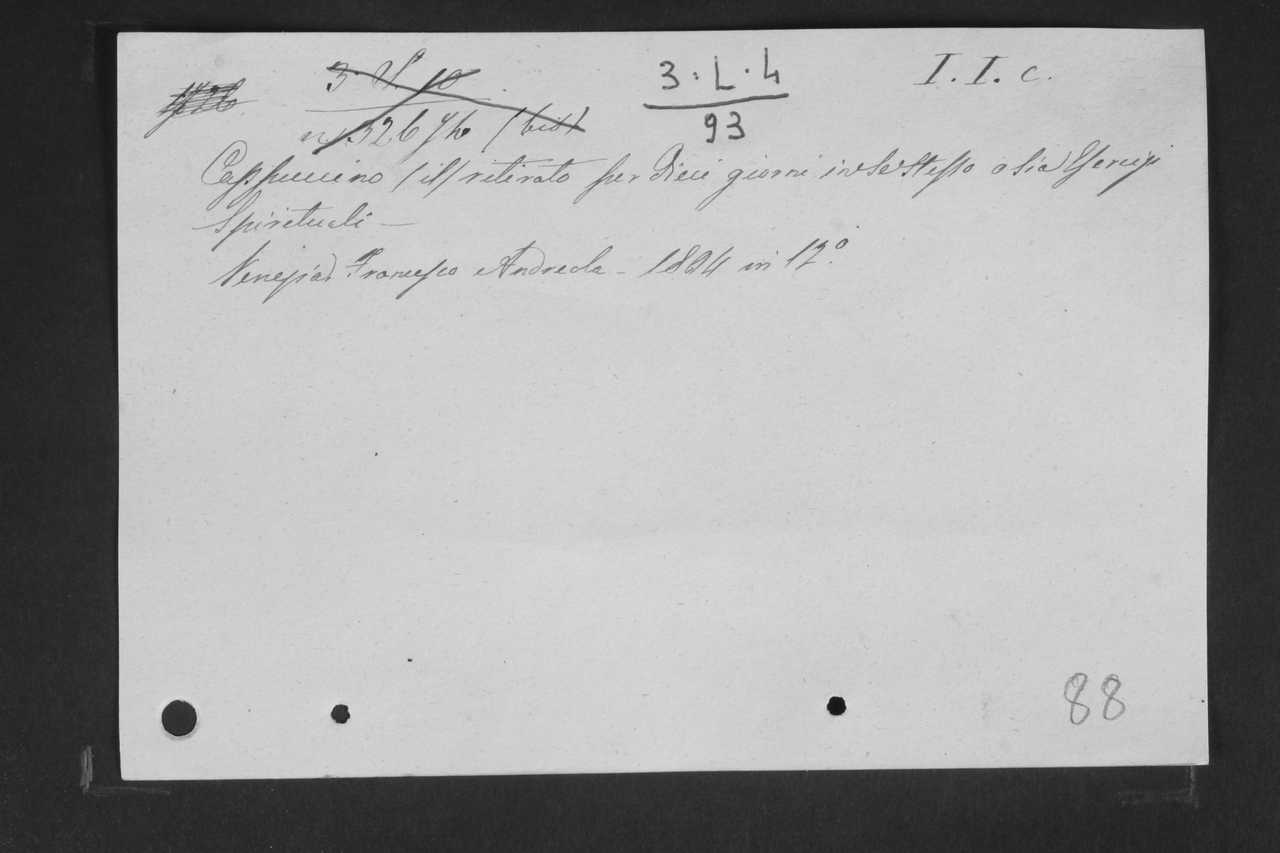 3 · L · 4
93
I. I. c.
Cappuccino (il) ritirato per Dieci giorni in se stesso o sia Esercizi
Spirituali —
Venezia Francesco Andreola - 1824 in 12°
88